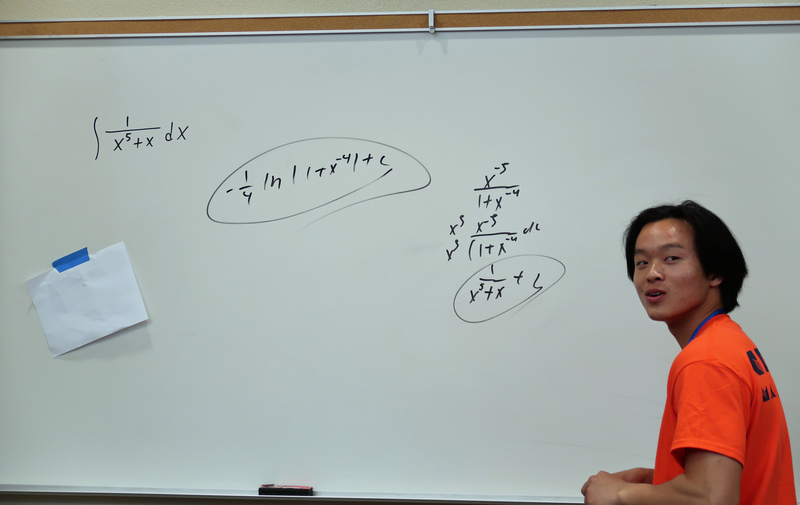 ∫ 1/(x⁵+x) dx
-1/4 ln|1+x⁻⁴|+c
x⁻⁵/(1+x⁻⁴)
x⁵ x⁻⁵/x⁵ (1+x⁻⁴ dx
1/(x⁵+x) + C